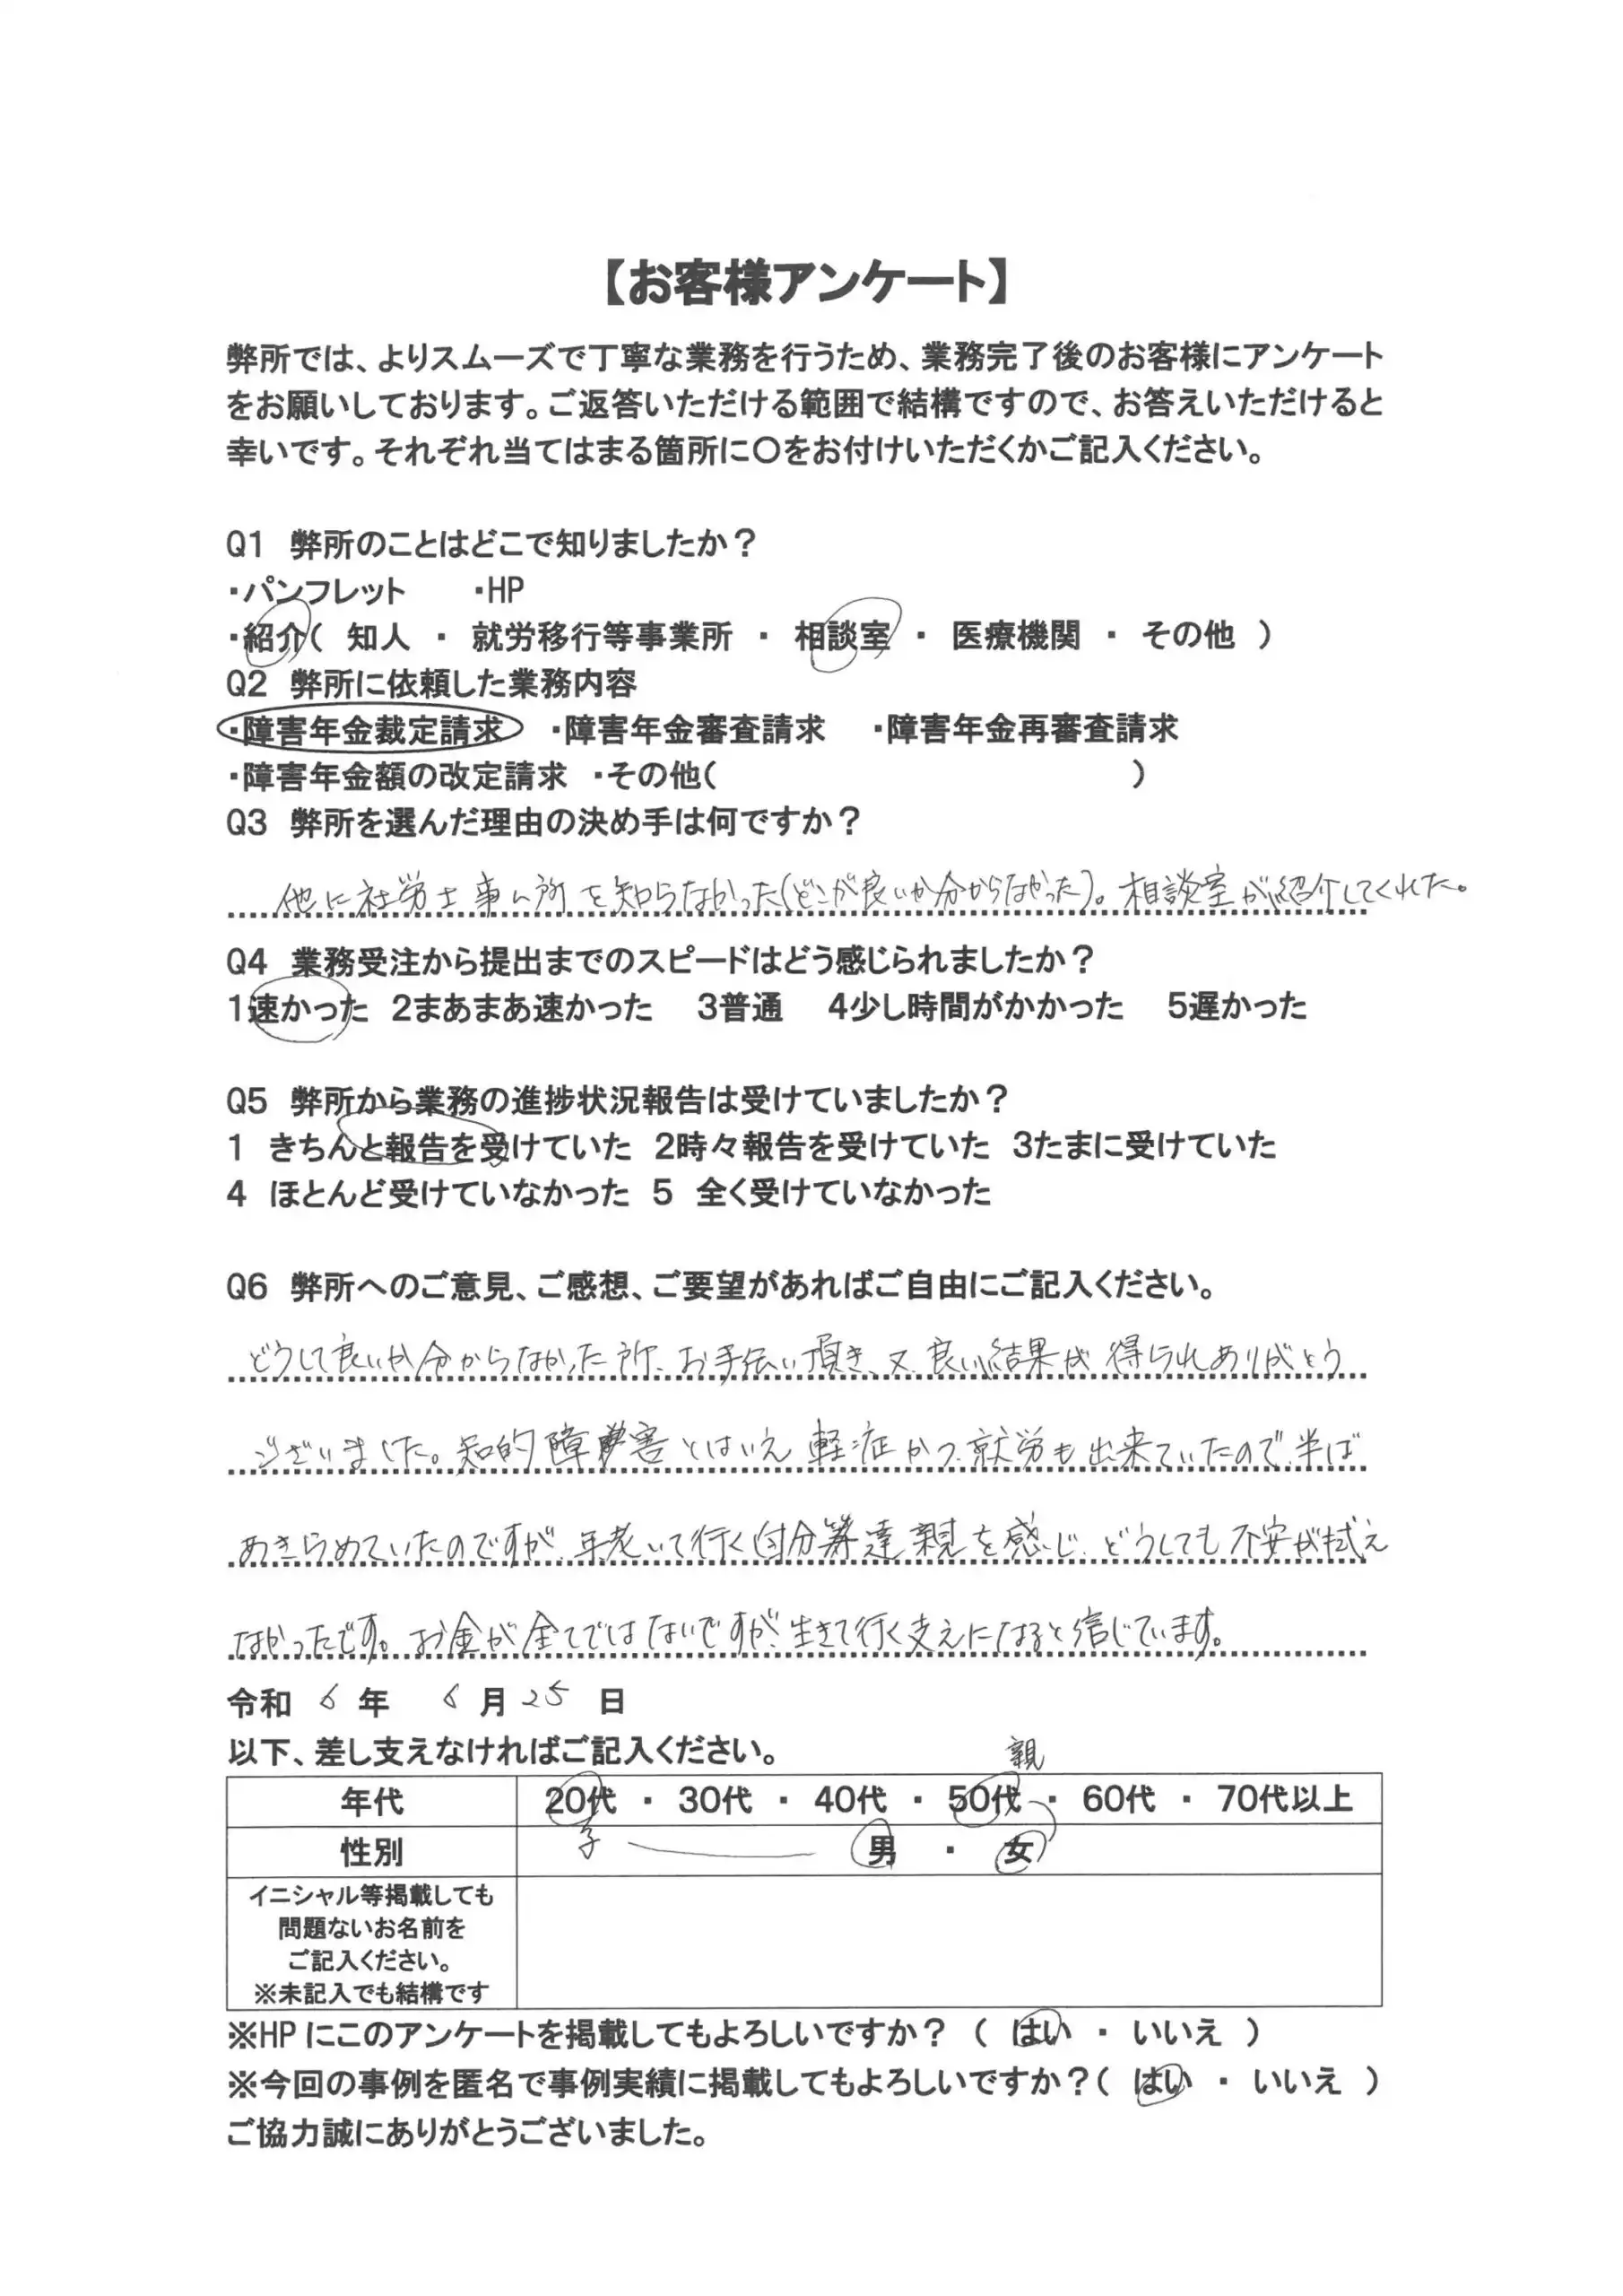 【お客様アンケート】
弊所では、よりスムーズで丁寧な業務を行うため、業務完了後のお客様にアンケート
をお願いしております。ご返答いただける範囲で結構ですので、お答えいただけると
幸いです。それぞれ当てはまる箇所に〇をお付けいただくかご記入ください。
Q1　弊所のことはどこで知りましたか？
・パンフレット　　・HP
・紹介（　知人　・　就労移行等事業所　・　相談室　・　医療機関　・　その他　）
Q2　弊所に依頼した業務内容
・障害年金裁定請求　・障害年金審査請求　・障害年金再審査請求
・障害年金額の改定請求　・その他（　　　　　　　　　　　　　）
Q3　弊所を選んだ理由の決め手は何ですか？
他に社労士事ム所を知らなかった（どこが良いか分からなかった）。相談室が紹介してくれた。
Q4　業務受注から提出までのスピードはどう感じられましたか？
1速かった　2まあまあ速かった　3普通　4少し時間がかかった　5遅かった
Q5　弊所から業務の進捗状況報告は受けていましたか？
1　きちんと報告を受けていた　2時々報告を受けていた　3たまに受けていた
4　ほとんど受けていなかった　5　全く受けていなかった
Q6　弊所へのご意見、ご感想、ご要望があればご自由にご記入ください。
どうして良いか分からなかった所、お手伝い頂き、又、良い結果が得られありがとう
ございました。知的障害とはいえ軽症かつ、就労も出来ていたので、半ば
あきらめていたのですが、年老いて行く自分達親を感じ、どうしても不安が拭え
なかったです。お金が全てではないですが、生きて行く支えになると信じています。
令和　6　年　6　月　25　日
以下、差し支えなければご記入ください。
親
年代　20代　・　30代　・　40代　・　50代　・　60代　・　70代以上
子
性別　男　・　女
イニシャル等掲載しても
問題ないお名前を
ご記入ください。
※未記入でも結構です
※HPにこのアンケートを掲載してもよろしいですか？（　はい　・　いいえ　）
※今回の事例を匿名で事例実績に掲載してもよろしいですか？（　はい　・　いいえ　）
ご協力誠にありがとうございました。